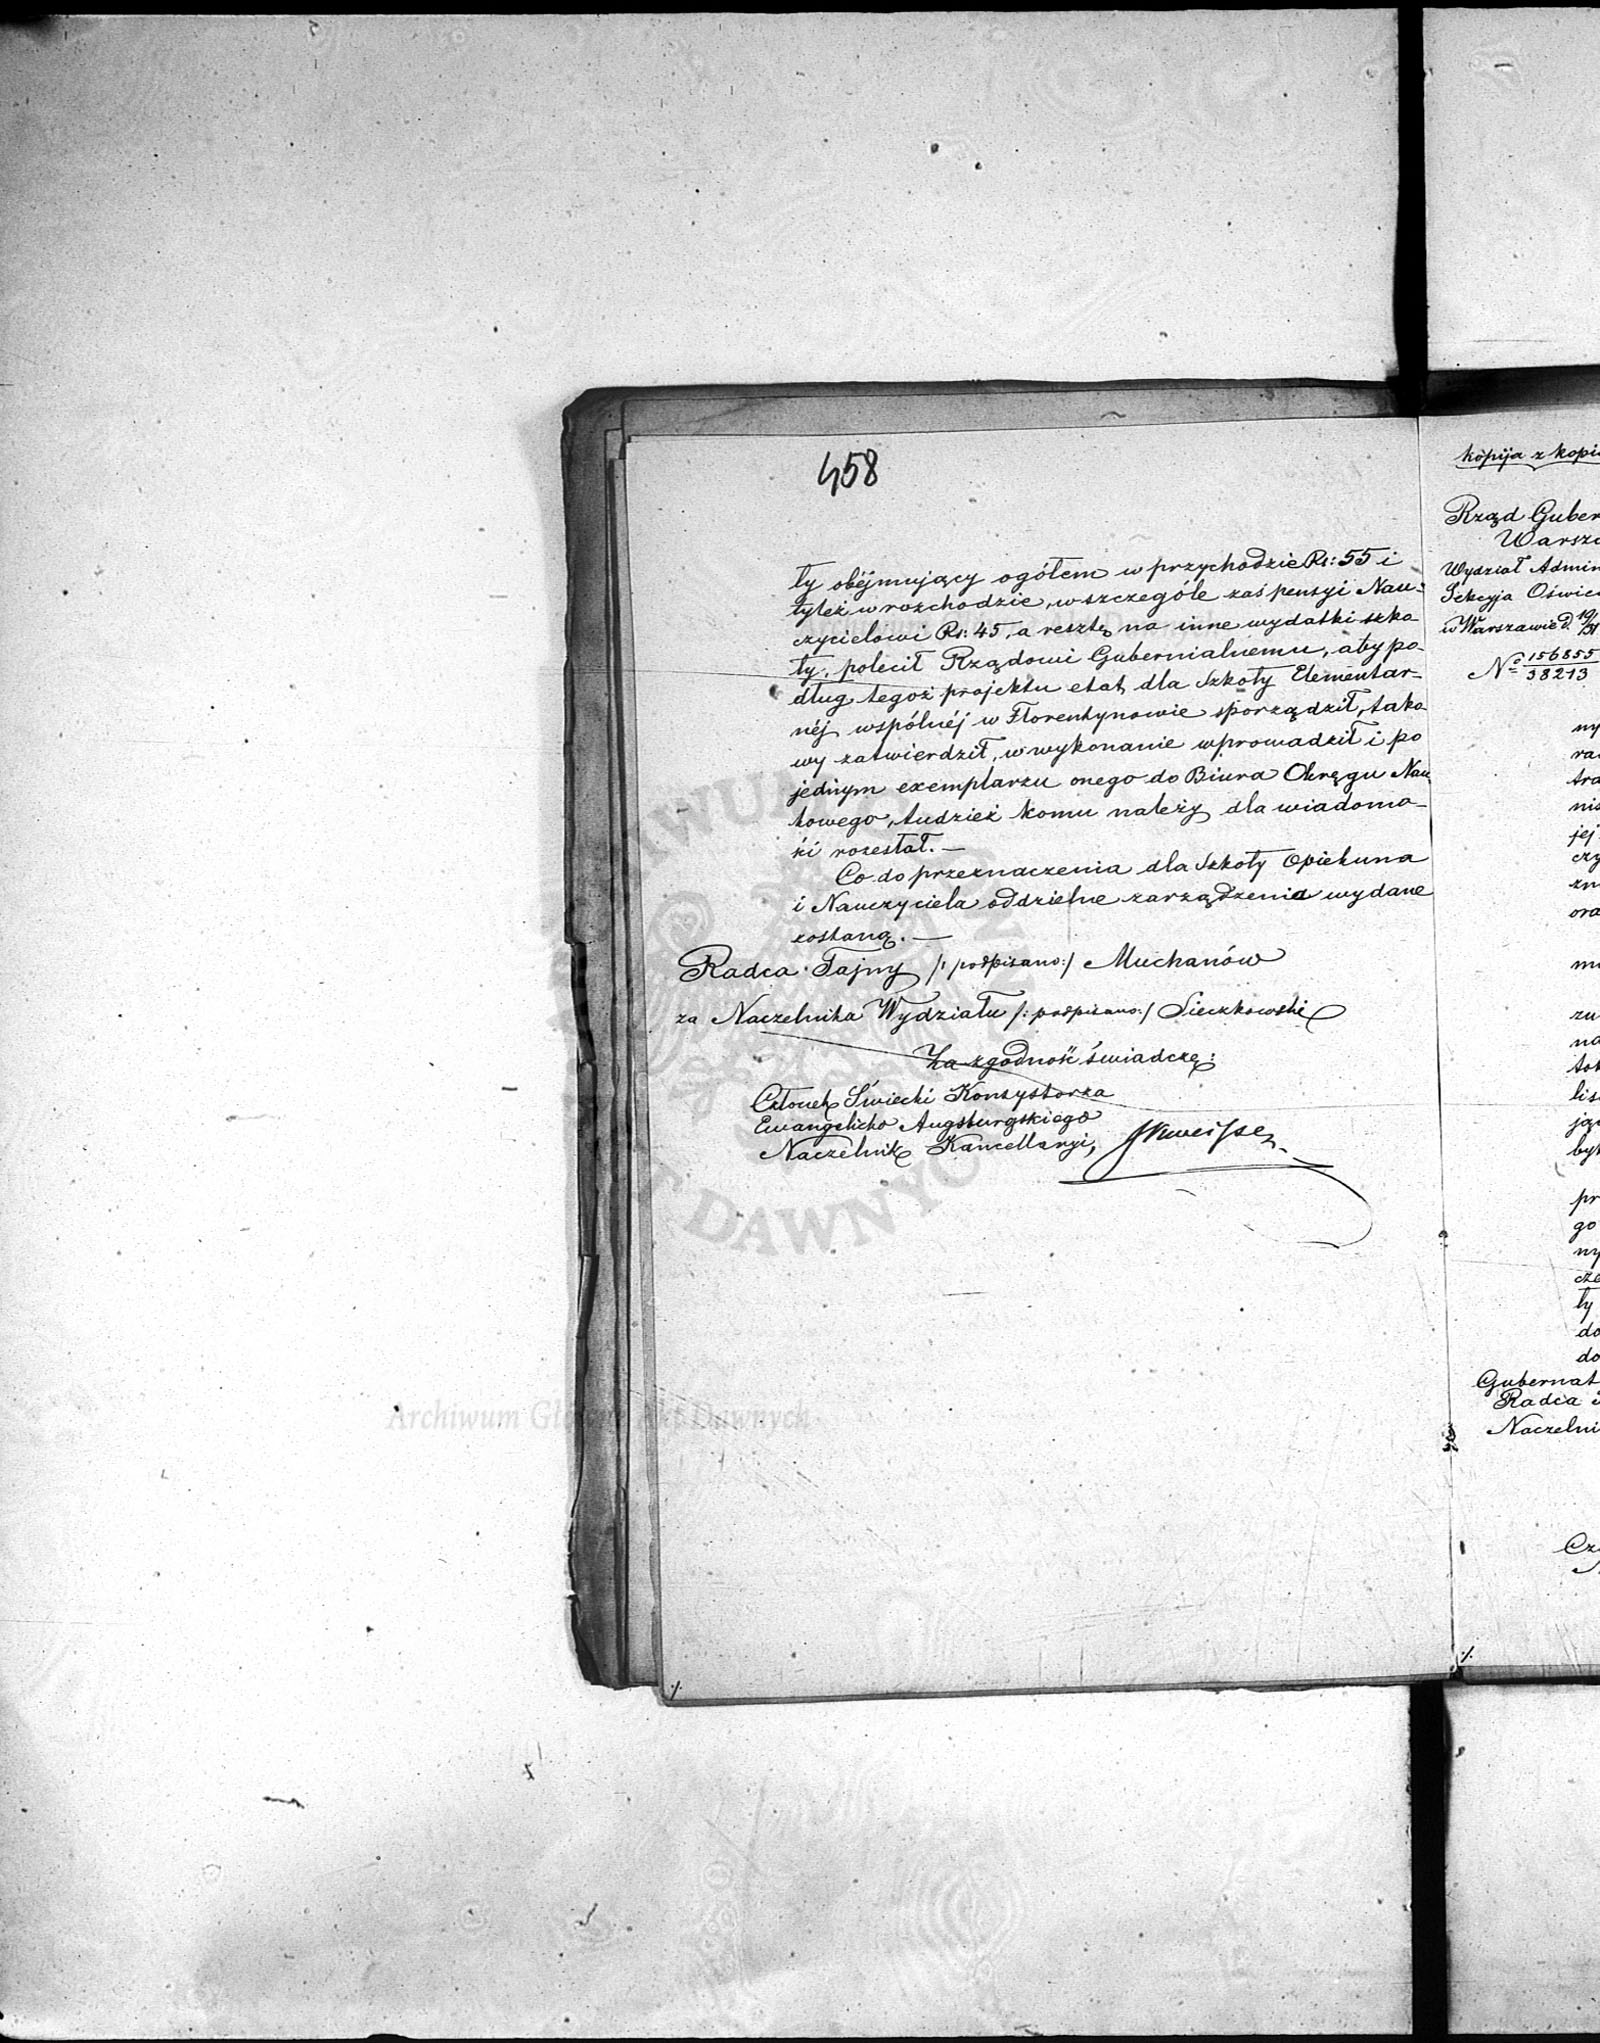 458
ły obéjmujący ogółem w przychodzie Rs: 55 i
tyleż w rozchodzie, w szczególe zaś pensyi Nau-
czycielowi Rs: 45, a resztę na inne wydatki szko
ły, polecił Rządowi Gubernialnemu, aby po-
dług tegoż projektu etat dla Szkoły Elementar-
néj wspólnéj w Florentynowie sporządził, tako
wy zatwierdził, w wykonanie wprowadził i po
jednym exemplarzu onego do Biura Okręgu Nau
kowego, tudzież komu należy dla wiadomo-
ści rozesłał. —
Co do przeznaczenia dla Szkoły Opiekuna
i Nauczyciela oddzielne zarządzenia wydane
zostaną. —
Radca Tajny /: podpisano :/ Muchanów
za Naczelnika Wydziału /: podpisano :/ Sieczkowski
Za zgodność świadczę:
Członek Świecki Konsystorza
Ewangelicko Augsburgskiego
Naczelnik Kancellaryi,
kopija z kopii
Rząd Guber
Warsza
Wydział Admin
Sekcyja Oświec
w Warszawie d. 19/31
No 156855
38213
ny
ra
tra
nis
jej
czy
zn
ora
mi
zu
na
tot
lis
ją
by
pr
go
ny
cze
ły
do
do
Gubernat
Radca
Naczelni
Cz
Archiwum Główne Akt Dawnych